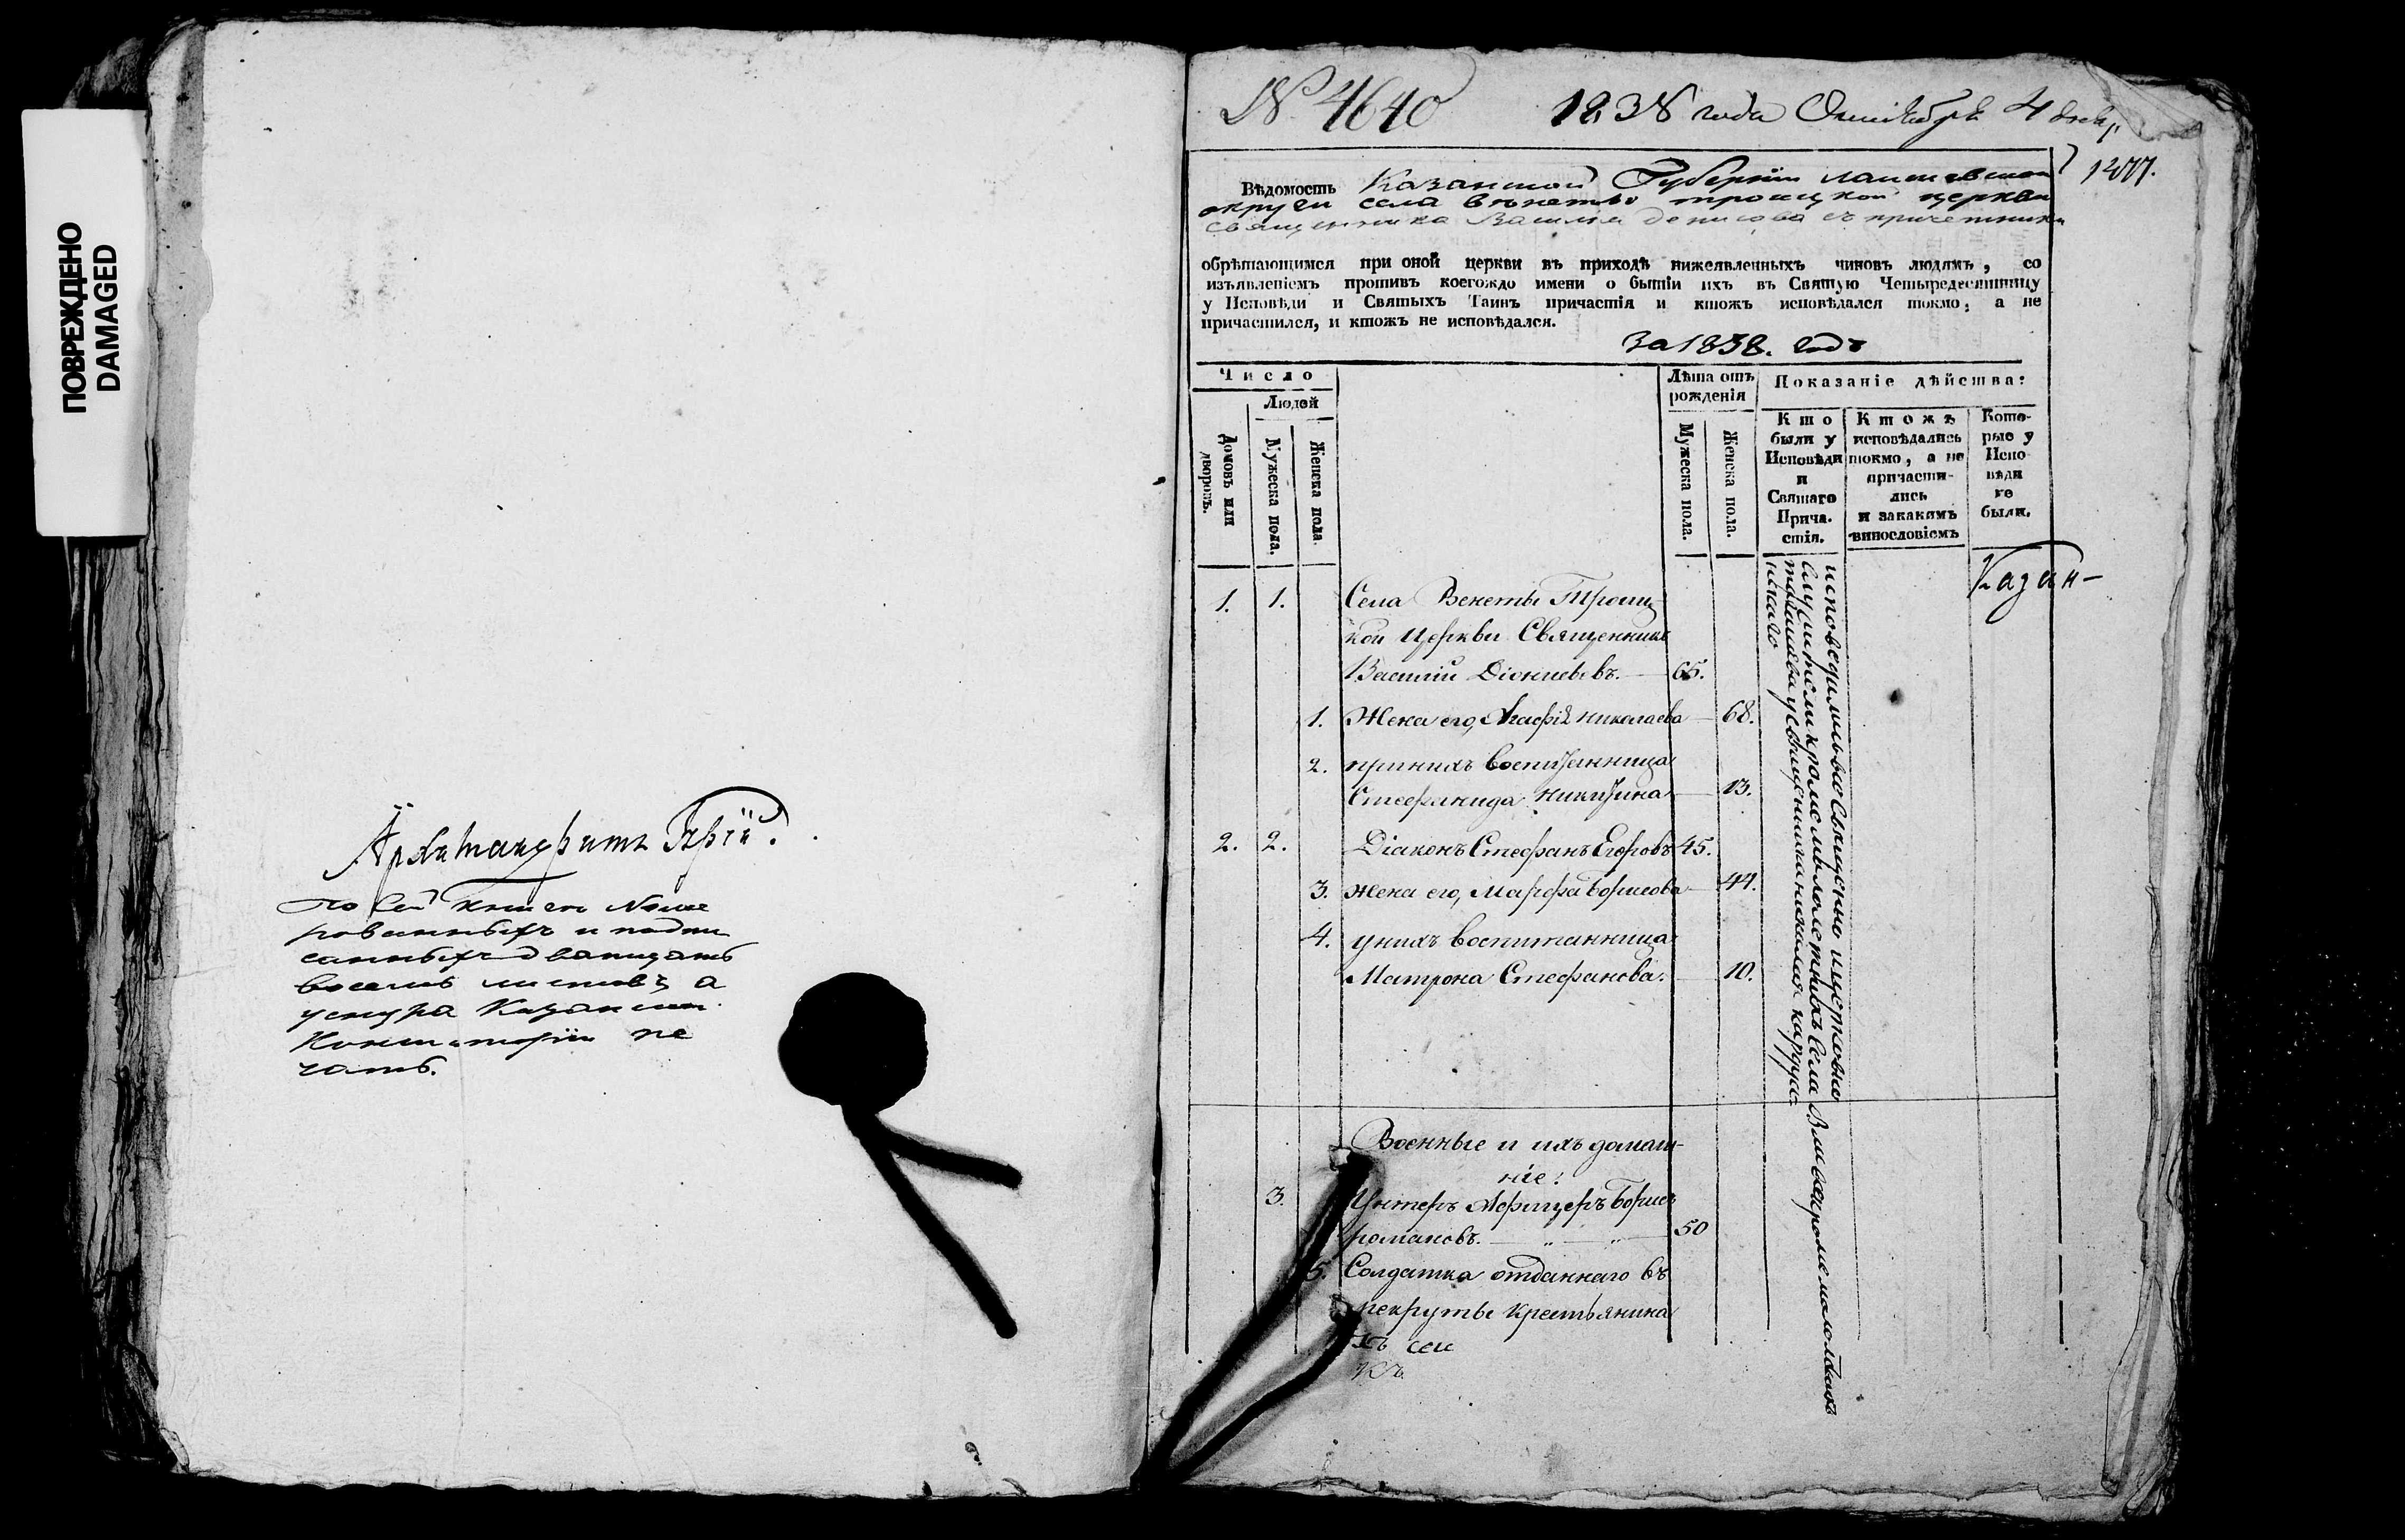 ПОВРЕЖДЕНО
DAMAGED
Архимандритъ
по сей книге Номе
рованныхъ и подпи
санныхъ дватцать
восемь листовъ а
у снура Казанской
Консисторіи пе
чать.
№ 4640 1838 года Октября 4
1277.
Вѣдомость Казанской Губерніи Лаишевской
округи села Венеты троицкой церкви
священника Василья денисова съ причетники
обрѣтающимся при оной церкви въ приходѣ нижеявленныхъ чиновъ людямъ, со
изъявленіемъ противъ коегождо имени о бытіи ихъ въ Святую Четыредесятницу
у Исповѣди и Святыхъ Таинъ причастія и ктожъ исповѣдался токмо, а не
причастился, и ктожъ не исповѣдался.
За 1838. годъ
Число
Людей
Домовъ или дворовъ.
Мужеска пола.
Женска пола.
Лѣта отъ
рожденія
Мужеска пола.
Женска пола.
Показаніе дѣйства:
Кто
были у
Исповѣди
и
Святаго
Прича-
стія.
Ктожъ
исповѣдались
токмо, а не
причасти-
лись
и закакимъ
винословіемъ
Кото-
рые у
Испо-
вѣди
не
были.
Казан-
1. 1. Села Венеты Троиц-
кой Церкви Священникъ
Василій Діонисьевъ. 65.
1. Жена его, Агафія Николаева 68.
2. принихъ воспитанница
Стефанида Никитина 13.
2. 2. Діаконъ Стефанъ Егоровъ 45.
3. Жена его, Марфа Борисова 44.
4. унихъ воспитанница
Матрона Стефанова. 10.
Военные и ихъ домаш-
ніе:
3. Унтеръ Афицеръ Борисъ
романовъ. 50
5. Солдатка отданнаго въ
рекруты крестьянина
исповедались все Священно и церковно
служители кроме малолетныхъ села
священника
къ сей
къ